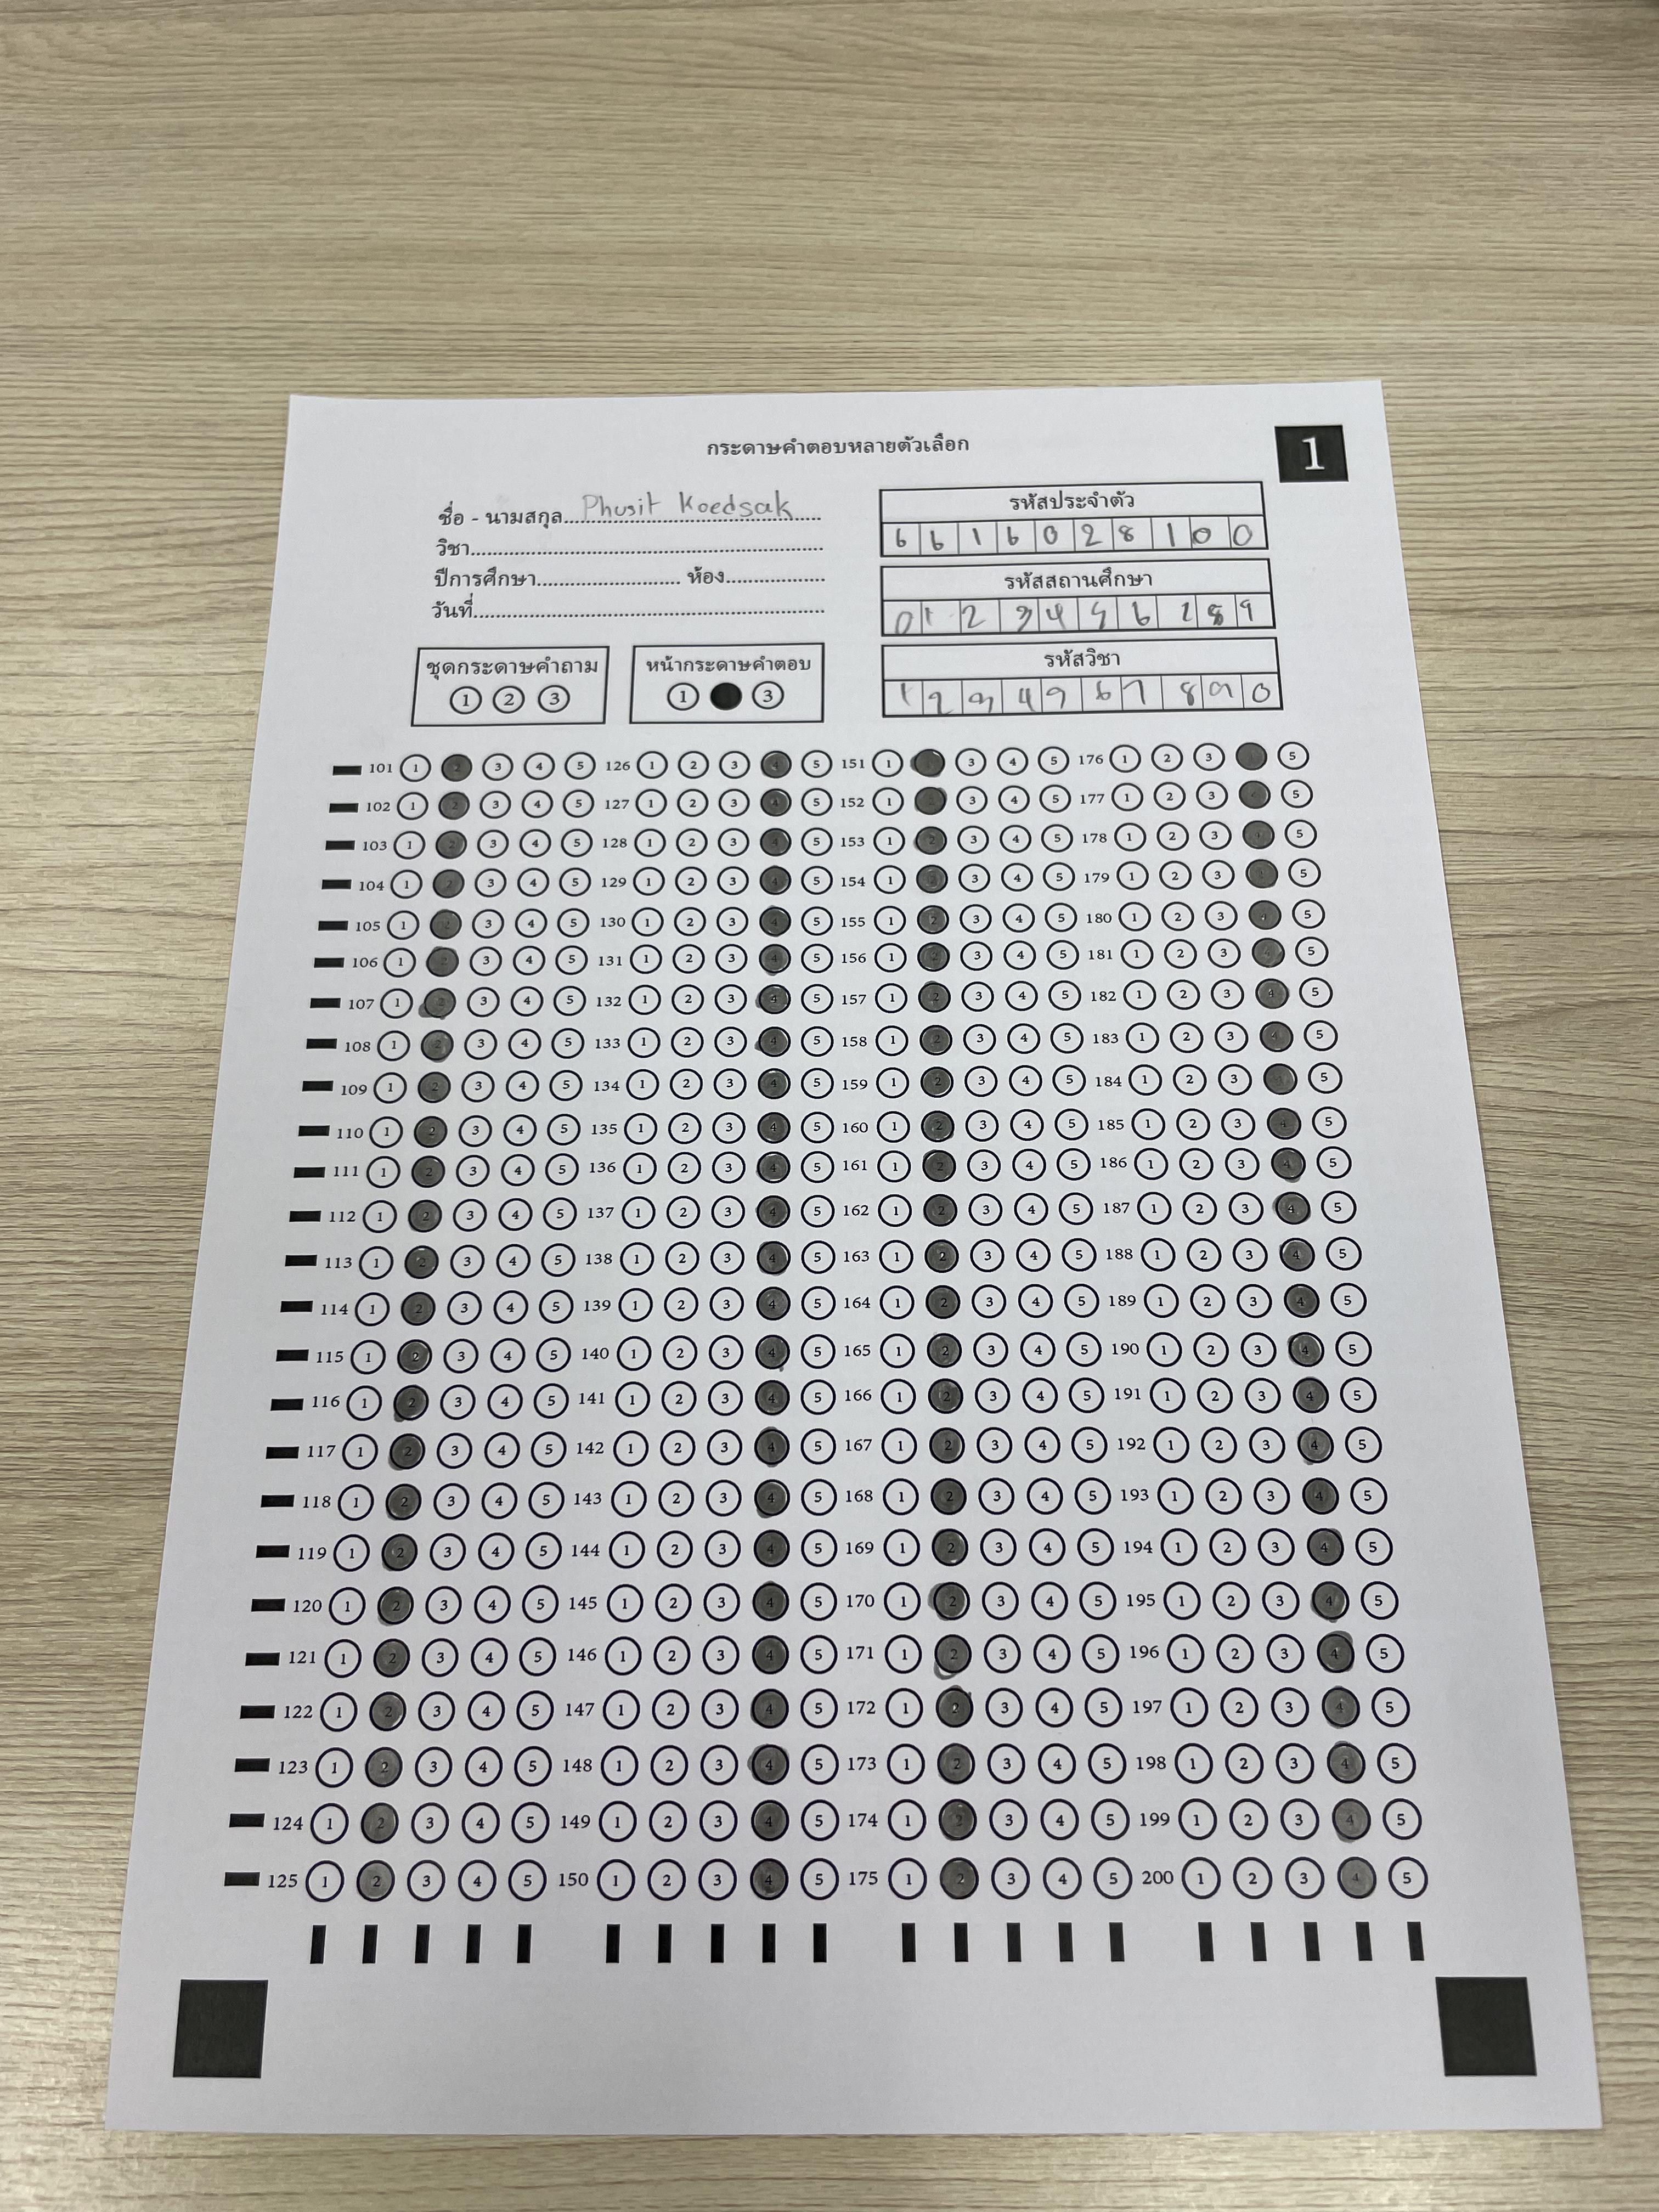 กระดาษคำตอบหลายตัวเลือก
1
ชื่อ - นามสกุล Phusit Koedsak
วิชา
ปีการศึกษา ห้อง
วันที่
รหัสประจำตัว
6 6 1 6 0 2 8 1 0 0
รหัสสถานศึกษา
0 1 2 3 4 5 6 7 8 9
รหัสวิชา
1 2 3 4 5 6 7 8 9 0
ชุดกระดาษคำถาม
1 2 3
หน้ากระดาษคำตอบ
1 3
101 1 2 3 4 5 126 1 2 3 4 5 151 1 3 4 5 176 1 2 3 5
102 1 2 3 4 5 127 1 2 3 4 5 152 1 2 3 4 5 177 1 2 3 4 5
103 1 2 3 4 5 128 1 2 3 4 5 153 1 2 3 4 5 178 1 2 3 4 5
104 1 2 3 4 5 129 1 2 3 4 5 154 1 2 3 4 5 179 1 2 3 4 5
105 1 2 3 4 5 130 1 2 3 4 5 155 1 2 3 4 5 180 1 2 3 4 5
106 1 2 3 4 5 131 1 2 3 4 5 156 1 2 3 4 5 181 1 2 3 4 5
107 1 2 3 4 5 132 1 2 3 4 5 157 1 2 3 4 5 182 1 2 3 4 5
108 1 2 3 4 5 133 1 2 3 4 5 158 1 2 3 4 5 183 1 2 3 4 5
109 1 2 3 4 5 134 1 2 3 4 5 159 1 2 3 4 5 184 1 2 3 4 5
110 1 2 3 4 5 135 1 2 3 4 5 160 1 2 3 4 5 185 1 2 3 4 5
111 1 2 3 4 5 136 1 2 3 4 5 161 1 2 3 4 5 186 1 2 3 4 5
112 1 2 3 4 5 137 1 2 3 4 5 162 1 2 3 4 5 187 1 2 3 4 5
113 1 2 3 4 5 138 1 2 3 4 5 163 1 2 3 4 5 188 1 2 3 4 5
114 1 2 3 4 5 139 1 2 3 4 5 164 1 2 3 4 5 189 1 2 3 4 5
115 1 2 3 4 5 140 1 2 3 4 5 165 1 2 3 4 5 190 1 2 3 4 5
116 1 2 3 4 5 141 1 2 3 4 5 166 1 2 3 4 5 191 1 2 3 4 5
117 1 2 3 4 5 142 1 2 3 4 5 167 1 2 3 4 5 192 1 2 3 4 5
118 1 2 3 4 5 143 1 2 3 4 5 168 1 2 3 4 5 193 1 2 3 4 5
119 1 2 3 4 5 144 1 2 3 4 5 169 1 2 3 4 5 194 1 2 3 4 5
120 1 2 3 4 5 145 1 2 3 4 5 170 1 2 3 4 5 195 1 2 3 4 5
121 1 2 3 4 5 146 1 2 3 4 5 171 1 2 3 4 5 196 1 2 3 4 5
122 1 2 3 4 5 147 1 2 3 4 5 172 1 2 3 4 5 197 1 2 3 4 5
123 1 2 3 4 5 148 1 2 3 4 5 173 1 2 3 4 5 198 1 2 3 4 5
124 1 2 3 4 5 149 1 2 3 4 5 174 1 2 3 4 5 199 1 2 3 4 5
125 1 2 3 4 5 150 1 2 3 4 5 175 1 2 3 4 5 200 1 2 3 4 5